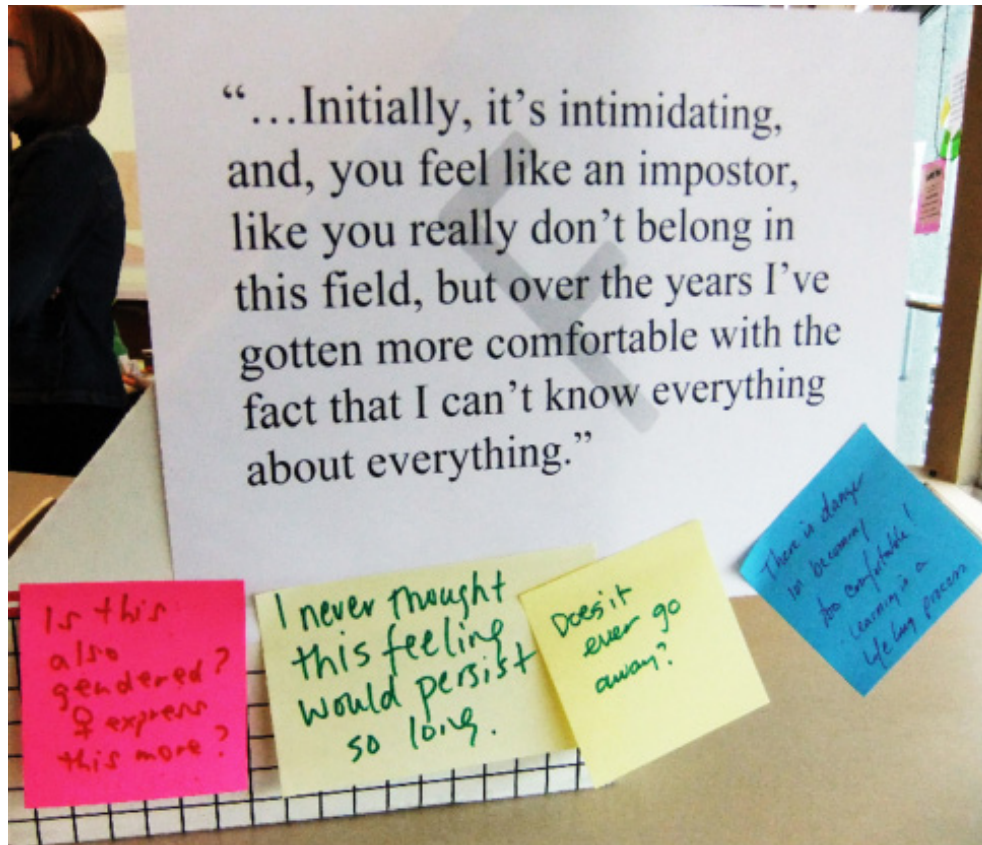 “…Initially, it’s intimidating,
and, you feel like an impostor,
like you really don’t belong in
this field, but over the years I’ve
gotten more comfortable with the
fact that I can’t know everything
about everything.”
Is this
also
gendered?
♀ express
this more?
I never thought
this feeling
would persist
so long.
Does it
ever go
away?
There is danger
in becoming
too comfortable!
Learning is a
life long process